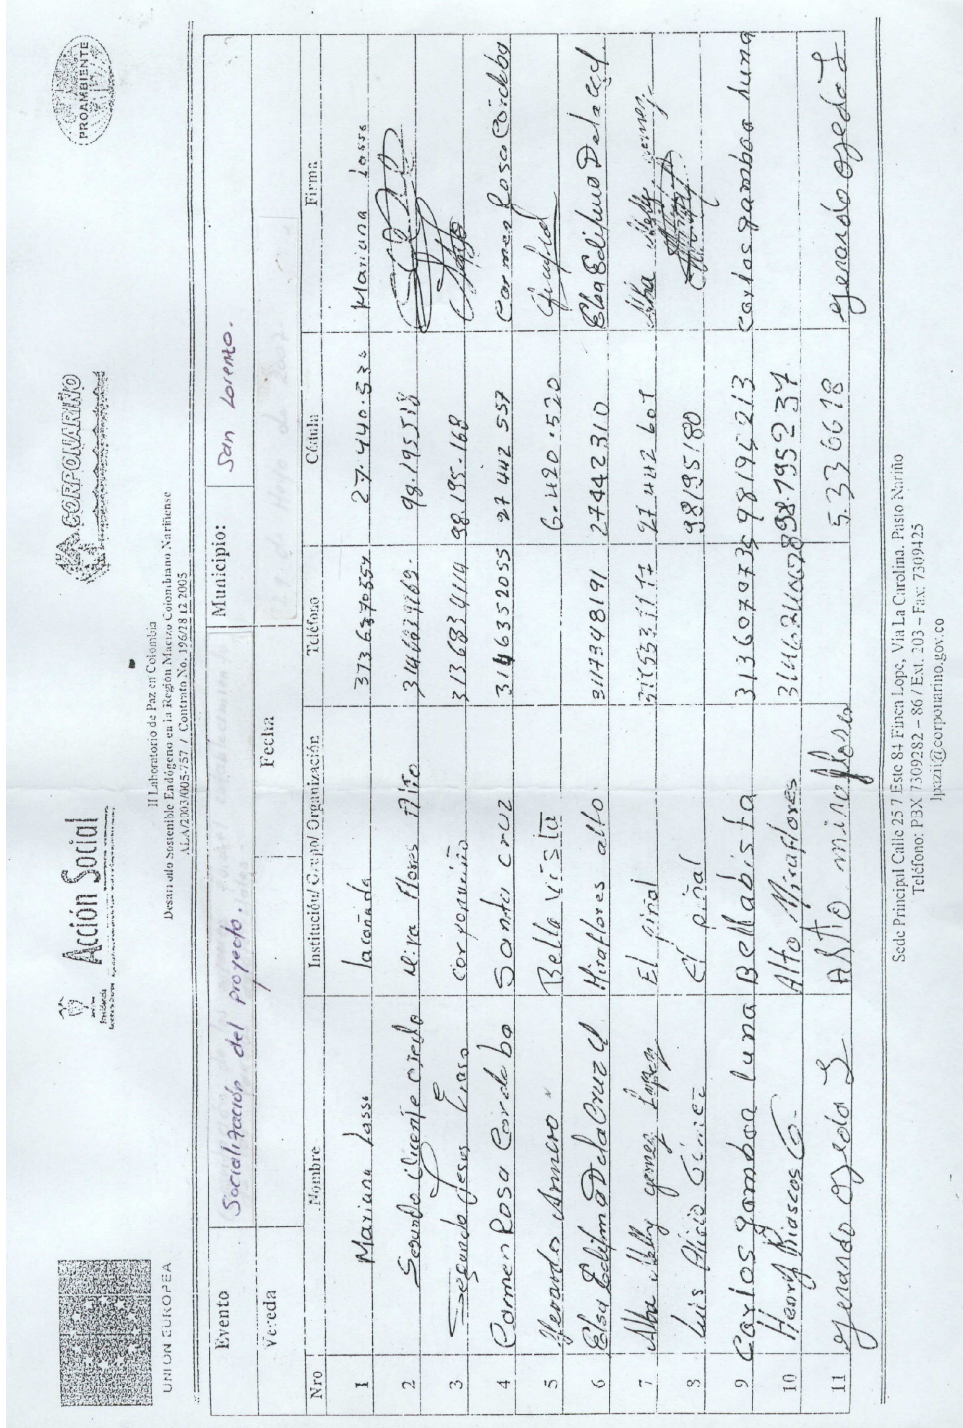 UNION EUROPEA
Acción Social
CORPONARIÑO
PROAMBIENTE
II Laboratorio de Paz en Colombia
Desarrollo Sostenible Endógeno en la Región Macizo Colombiano Nariñense
ALA/2003/005-757 / Contrato No. 196/28 12 2005
Evento Socialización del proyecto. Municipio: San Lorenzo.
Vereda Fecha
Nro Nombre Institución/Grupo/ Organización Teléfono Cédula Firma
1 Mariana Lasso lacañada 27.440.53 Mariana Lasso
2 Segundo Vicente Mira flores Alto 98.195518
3 Segundo Jesus Erazo corponariño 3136834114 98.195.168
4 Carmen Rosa Cordoba Santa cruz 3146352055 27 442 557 Carmen Rosa Córdoba
5 Armero Bella vista 6.420.520
6 Elsa Edilma De la Cruz Miraflores alto 3117348191 27442310 Elsa Edilma De la
7 Alba Nelly gomez Lopez El piñal 27 442 601 Alba Nelly gomez
8 Luis El piñal 98195180
9 Carlos gamboa luna Bellabista 3136079739 98195213 Carlos gamboa luna
10 Henry Riascos G. Alto Miraflores 98.195237
11 gerardo ojeda Alto miraflores 5.336618 gerardo ojeda
Sede Principal Calle 25 7 Este 84 Finca Lope, Via La Carolina, Pasto Nariño
Teléfono: PBX 7309282 – 86 / Ext. 203 – Fax: 7309425
lpazii@corponarino.gov.co